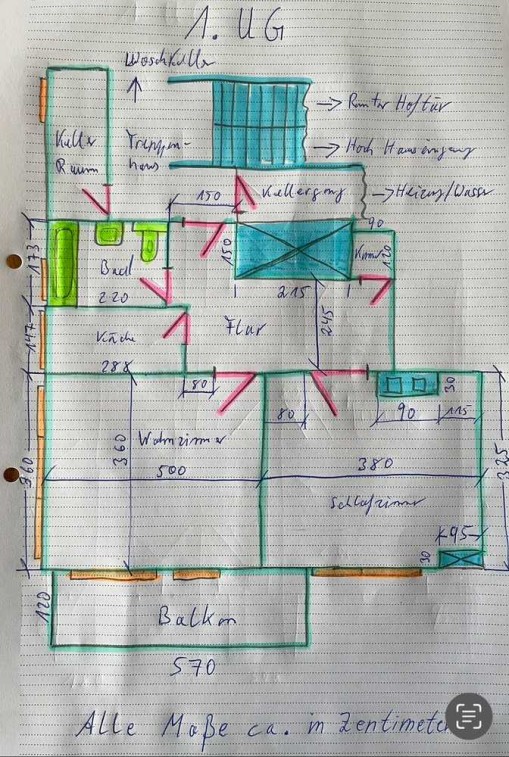 1. UG
Waschkeller
→ Runter Hoftür
Keller
Raum
Treppen-
haus
→ Hoch Hauseingang
Kellergang
→ Heizung/Wasser
150
90
173
Bad
150
120
220
215
147
Küche
Flur
245
288
80
30
360
360
Wohnzimmer
80
90
115
500
380
325
Schlafzimmer
95
30
120
Balkon
570
Alle Maße ca. in Zentimeter